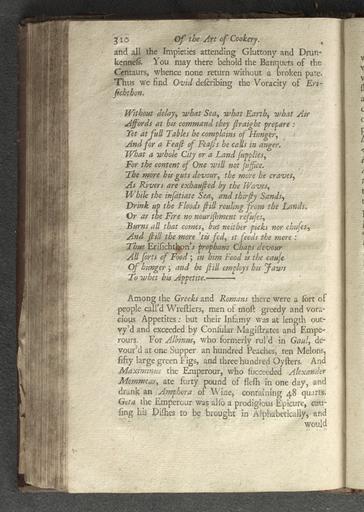 310 Of the Art of Cookery.
and all the Impieties attending Gluttony and Drun-
kenness. You may there behold the Banquets of the
Centaurs, whence none return without a broken pate.
Thus we find Ovid describing the Voracity of Eri-
sichthon.
Without delay, what Sea, what Earth, what Air
Affords at his command they straight prepare:
Yet at full Tables he complains of Hunger,
And for a Feast of Feasts he calls in anger.
What a whole City or a Land supplies,
For the content of One will not suffice.
The more his guts devour, the more he craves,
As Rivers are exhausted by the Waves,
While the insatiate Sea, and thirsty Sands,
Drink up the Floods still rowling from the Lands.
Or as the Fire no nourishment refuses,
Burns all that comes, but neither picks nor chuses,
And still the more 'tis fed, it feeds the more:
Thus Erisichthon's prophane Chaps devour
All sorts of Food; in him Food is the cause
Of hunger; and he still employs his Jaws
To whet his Appetite.
Among the Greeks and Romans there were a sort of
people call'd Wrestlers, men of most greedy and vora-
cious Appetites: but their Infamy was at length out-
vy'd and exceeded by Consular Magistrates and Empe-
rours. For Albinus, who formerly rul'd in Gaul, de-
vour'd at one Supper an hundred Peaches, ten Melons,
fifty large green Figs, and three hundred Oysters. And
Maximinus the Emperour, who succeeded Alexander
Mammeas, ate forty pound of flesh in one day, and
drank an Amphora of Wine, containing 48 quarts.
Geta the Emperour was also a prodigious Epicure, cau-
sing his Dishes to be brought in Alphabetically, and
would